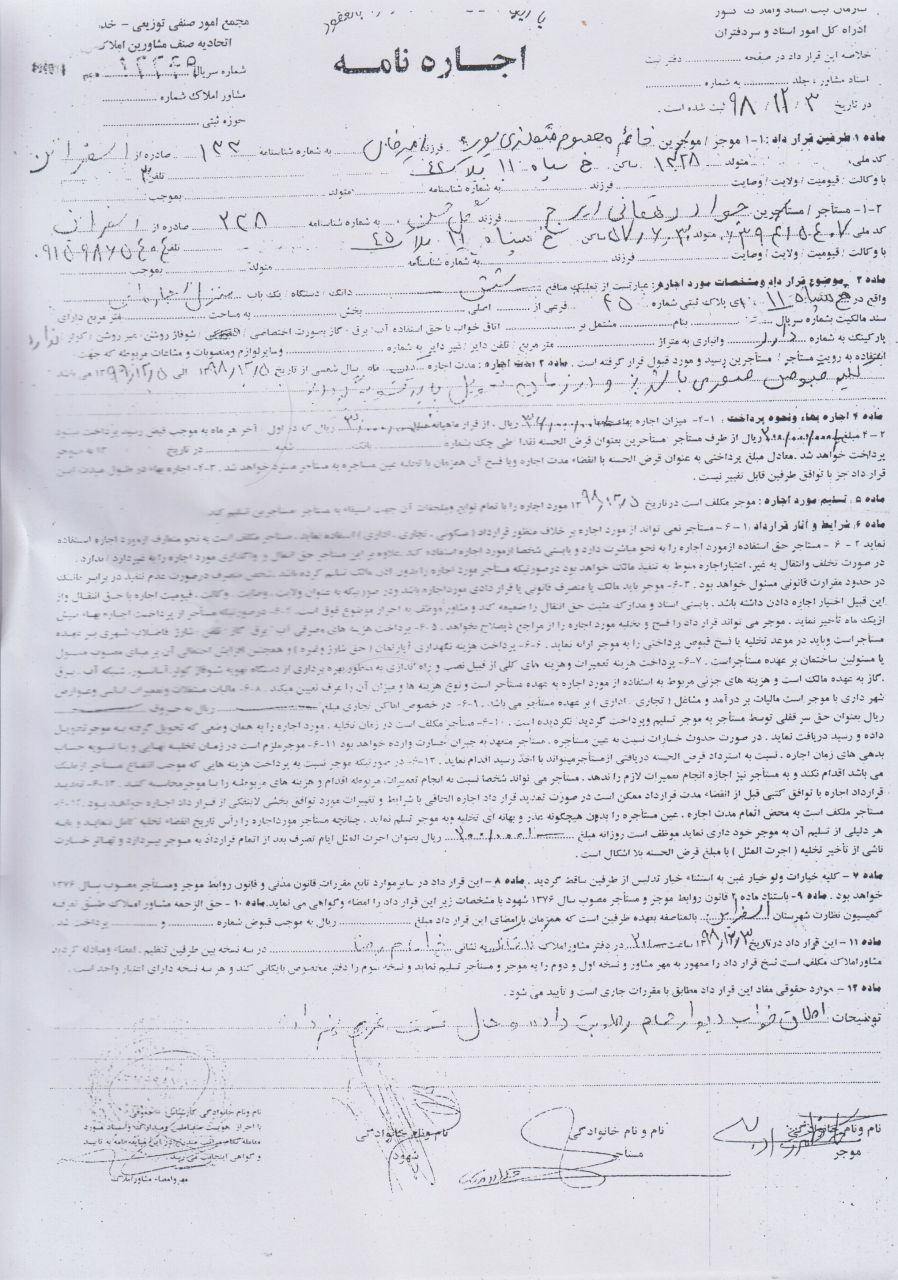 سازمان ثبت اسناد و املاک کشور
اداره کل امور اسناد و سردفتران
خلاصه این قرار داد در صفحه ........ دفتر ثبت
اسناد مشاور ، جلد ........ به شماره ........
در تاریخ ۹۸/۱۲/۳ ثبت شده است .
اجـاره نامه
مجمع امور صنفی توزیعی - خد
اتحادیه صنف مشاورین املاک
شماره سریال
مشاور املاک شماره ........
حوزه ثبتی ........
ماده ۱ طرفین قرار داد : ۱-۱ موجر / موجرین خانم معصوم فرزند امیرخان به شماره شناسنامه ۱۳۳ صادره از اسفراین
کد ملی متولد ۱۳۲۸ ساکن خ سپاه ۱۱ پلاک ۴۵ تلفن
با وکالت / قیومیت / ولایت / وصایت ........ فرزند ........ به شماره شناسنامه ........ متولد ........ بموجب
۱-۲- مستأجر / مستأجرین جواد دهقانی ایرج فرزند به شماره شناسنامه ۲۲۸ صادره از اسفراین
کد ملی متولد ساکن خ سپاه ۱۱ پلاک ۴۵ تلفن
با وکالت / قیومیت / ولایت / وصایت ........ فرزند ........ به شماره شناسنامه ........ متولد ........ بموجب
ماده ۲ - موضوع قرار داد ومشخصات مورد اجاره: عبارتست از تملیک منافع شش دانگ / دستگاه / یک باب منزل
واقع در خ سپاه ۱۱ دارای پلاک ثبتی شماره ۴۵ فرعی از ........ اصلی ........ بخش ........ به مساحت ........ متر مربع دارای
سند مالکیت بشماره سریال ........ بنام ........ مشتمل بر ........ اتاق خواب با حق استفاده آب / برق / گاز بصورت اختصاصی / شوفاژ روشن / غیر روشن / کولر ندارد
پارکینگ به شماره دارد وانباری به متراژ ........ متر مربع / تلفن دایر / غیر دایر به شماره ........ وسایر لوازم ومنصوبات و مشاعات مربوطه که جهت
استفاده به رویت مستأجر / مستأجرین رسید و مورد قبول قرار گرفته است . ماده ۳ مدت اجاره : مدت اجاره ماه / سال شمسی از تاریخ ۱۳۹۸/۱۲/۵ الی ۱۳۹۹/۱۲/۵ می باشد
ماده ۴ اجاره بهاء ونحوه پرداخت : ۱-۴- میزان اجاره بهاء ریال ، از قرار ماهیانه مبلغ ریال که در اول / آخر هر ماه به موجب قبض رسید پرداخت شود
۲-۴ مبلغ ریال از طرف مستأجر / مستأجرین بعنوان قرض الحسنه نقدا / طی چک بشماره ........ بانک ........ شعبه ........ در تاریخ ........ ۱۳ به موجر
پرداخت خواهد شد .معادل مبلغ پرداختی به عنوان قرض الحسنه با انقضاء مدت اجاره ویا فسخ آن همزمان با تخلیه عین مستأجره به مستأجر مسترد خواهد شد . ۳-۴- اجاره بهاء در طول مدت این
قرار داد جز با توافق طرفین قابل تغییر نیست .
ماده ۵ . تسلیم مورد اجاره : موجر مکلف است در تاریخ ۱۳۹۸/۱۲/۵ مورد اجاره را با تمام توابع وملحقات آن جهت استیفاء به مستأجر / مستأجرین تسلیم کند.
ماده ۶. شرایط و آثار قرارداد : ۱-۶- مستأجر نمی تواند از مورد اجاره بر خلاف منظور قرارداد ( مسکونی ، تجاری ، اداری ) استفاده نماید . مستأجر مکلف است به نحو متعارف از مورد اجاره استفاده
نماید ۲-۶- مستأجر حق استفاده از مورد اجاره را به نحو مباشرت دارد و بایستی شخصا از مورد اجاره استفاده کند . علاوه بر این مستأجر حق انتقال و واگذاری مورد اجاره را به غیر دارد / ندارد .
در صورت تخلف وانتقال به غیر، اعتبار اجاره منوط به تنفیذ مالک خواهد بود درصورتیکه مستأجر مورد اجاره را بدون اذن مالک تسلیم کرده باشد شخص متصرف درصورت عدم تنفیذ در برابر مالک
در حدود مقررات قانونی مسئول خواهد بود . ۳-۶- موجر باید مالک یا متصرف قانونی یا قراردادی مورد اجاره باشد ودر صورتیکه به عنوان ولایت ، وصایت ، وکالت ، قیمومت اجاره با حق انتقال واز
این قبیل اختیار اجاره دادن داشته باشد . بایستی اسناد و مدارک مثبت حق انتقال را ضمیمه کند و مشاور موظف به احراز موضوع فوق است . ۴-۶- درصورتیکه مستأجر از پرداخت اجاره بهاء بیش
از یک ماه تأخیر نماید . موجر می تواند قرار داد را فسخ و تخلیه مورد اجاره را از مراجع ذیصلاح بخواهد . ۵-۶- پرداخت هزینه های مصرفی آب / برق / گاز / تلفن / شارژ فاضلاب شهری بر عهده
مستأجر است وباید در موعد تخلیه یا فسخ قبوض پرداختی را به موجر ارائه نماید . ۶-۶- پرداخت هزینه نگهداری آپارتمان ( حق شارژ وغیره ) و همچنین افزایش احتمالی آن بر مبنای مصوب مسئول
یا مسئولین ساختمان بر عهده مستأجر است . ۷-۶- پرداخت هزینه تعمیرات وهزینه های کلی از قبیل نصب و راه اندازی به منظور بهره برداری از دستگاه تهویه شوفاژ کولر، آسانسور ، شبکه آب ، برق
،گاز به عهده مالک است و هزینه های جزئی مربوط به استفاده از مورد اجاره به عهده مستأجر است و نوع هزینه ها و میزان آن را عرف تعیین میکند . ۸-۶- مالیات مستغلات وتعمیرات اساسی وعوارض
شهر داری با موجر است مالیات بر درآمد و مشاغل ( تجاری ، اداری ) بر عهده مستأجر می باشد . ۹-۶- در خصوص اماکن تجاری مبلغ ........ ریال به حروف ........
ریال بعنوان حق سر قفلی توسط مستأجر به موجر تسلیم وپرداخت گردید / نگردیده است . ۱۰-۶- مستأجر مکلف است در زمان تخلیه ، مورد اجاره را به همان وضعی که تحویل گرفته به موجر تحویل
داده و رسید دریافت نماید . در صورت حدوث خسارات نسبت به عین مستأجره ، مستأجر متعهد به جبران خسارت وارده خواهد بود ۱۱-۶ موجر ملزم است در زمان تخلیه نهایی و با تسویه حساب
بدهی های زمان اجاره ، نسبت به استرداد قرض الحسنه دریافتی از مستأجر با اخذ رسید اقدام نماید . ۱۲-۶- در صورتیکه موجر نسبت به پرداخت هزینه هایی که موجب انتفاع مستأجر از ملک
می باشد اقدام نکند و به مستأجر نیز اجازه انجام تعمیرات لازم را ندهد . مستأجر می تواند شخصا نسبت به انجام تعمیرات مربوطه اقدام و هزینه های مربوطه را با موجر محاسبه کند . ۱۳-۶- تمدید
قرارداد اجاره با توافق کتبی قبل از انقضاء مدت قرارداد ممکن است در صورت تمدید قرار داد اجاره الحاقی با شرایط و تغییرات مورد توافق بخشی لاینفک از قرار داد اجاره خواهد بود . ۱۴-۶-
مستأجر مکلف است به محض اتمام مدت اجاره ، عین مستأجره را بدون هیچگونه عذر و بهانه ای تخلیه و به موجر تسلیم نماید . چنانچه مستأجر مورد اجاره را رأس تاریخ انقضاء تخلیه کامل ننماید و بنا به
هر دلیلی از تسلیم آن به موجر خود داری نماید موظف است روزانه مبلغ ریال بعنوان اجرت المثل ایام تصرف بعد از اتمام قرارداد به موجر بپردازد و تهاتر خسارت
ناشی از تأخیر تخلیه ( اجرت المثل ) با مبلغ قرض الحسنه بلا اشکال است .
ماده ۷ - کلیه خیارات ولو خیار غبن به استثناء خیار تدلیس از طرفین ساقط گردید . ماده ۸ - این قرار داد در سایر موارد تابع مقررات قانون مدنی و قانون روابط موجر ومستأجر مصوب سال ۱۳۷۶
خواهد بود . ماده ۹- باستناد ماده ۲ قانون روابط موجر و مستأجر مصوب سال ۱۳۷۶ شهود با مشخصات زیر این قرار داد را امضاء وگواهی می نماید. ماده ۱۰- حق الزحمه مشاور املاک طبق تعرفه
کمیسیون نظارت شهرستان اسفراین بالمناصفه بعهده طرفین است که همزمان با امضای این قرار داد مبلغ ........ ریال به موجب قبض شماره ........ و ........ پرداخت شد
ماده ۱۱ - این قرار داد در تاریخ ۱۳۹۸/۱۲/۳ ساعت ۲۰ در دفتر مشاور املاک به نشانی در سه نسخه بین طرفین تنظیم ، امضاء ومبادله گردید
مشاور املاک مکلف است نسخ قرار داد را ممهور به مهر مشاور و نسخه اول و دوم را به موجر و مستأجر تسلیم نماید و نسخه سوم را دفتر مخصوص بایگانی کند و هر سه نسخه دارای اعتبار واحد است .
ماده ۱۲ - موارد حقوقی مفاد این قرار داد مطابق با مقررات جاری است و تأیید می شود .
توضیحات اطاق خواب دیوار حمام رطوبت داده
نام و نام خانوادگی
موجر
نام و نام خانوادگی
مستأجر
نام و نام خانوادگی
شهود
نام ونام خانوادگی کارشناس حقوقی
با احراز هویت متعاملین ومدارک واسناد مورد
و گواهی اینجانب می رسد
مهر وامضاء مشاور املاک